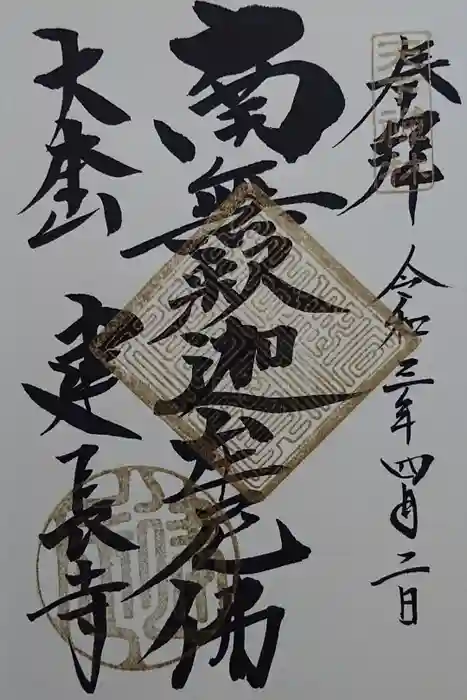 奉拝
令和三年四月二日
南無釈迦牟尼佛
大本山
建長寺